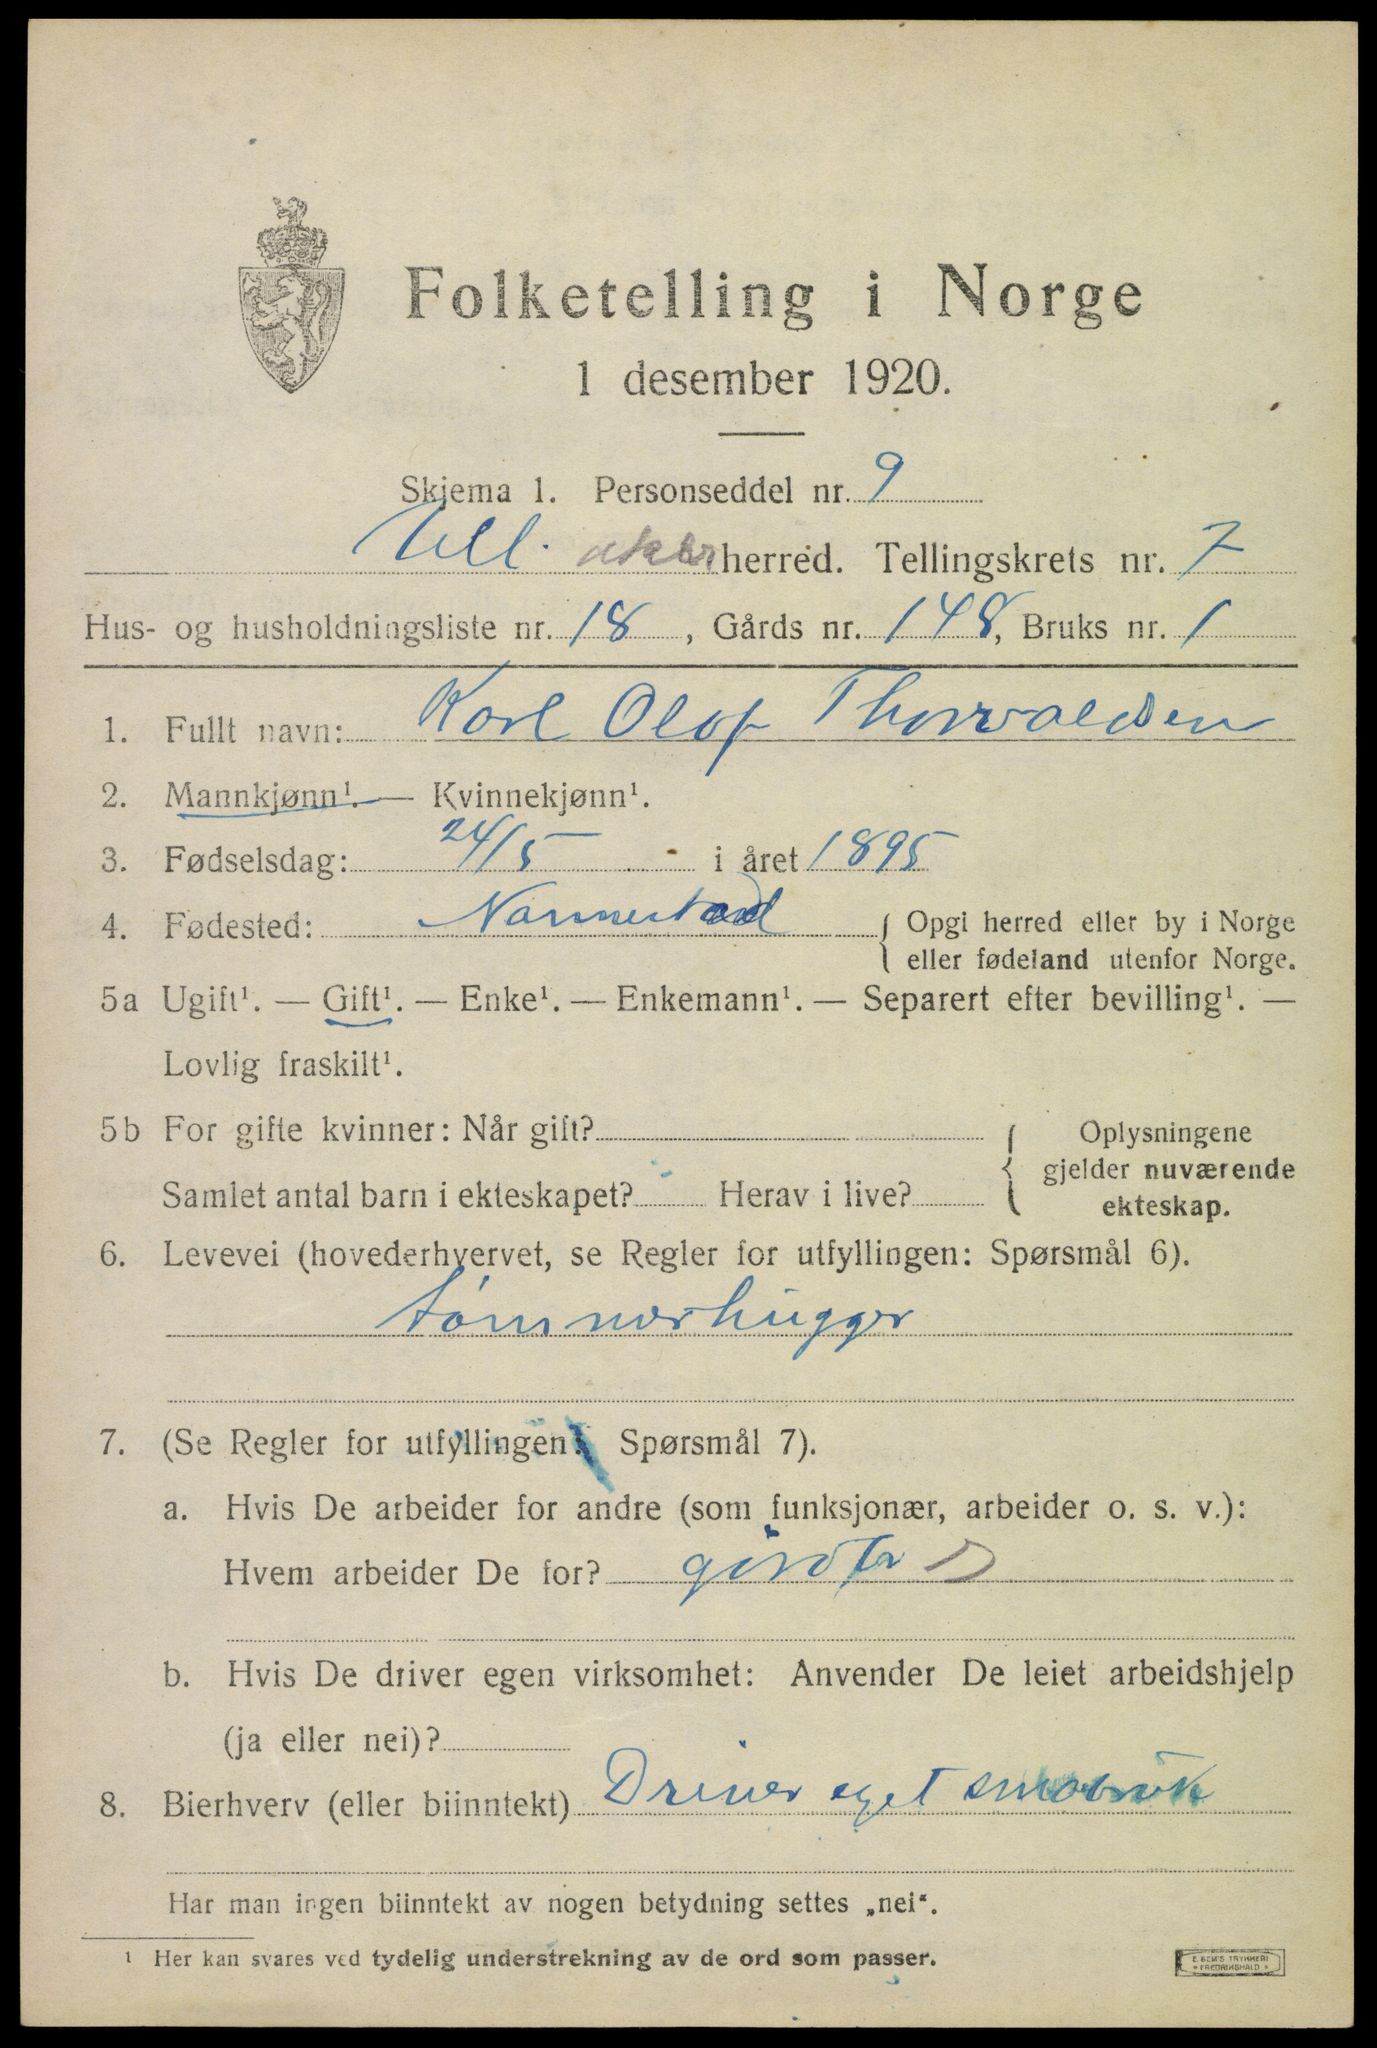 Folketelling i Norge
1 desember 1920.
Skjema 1. Personseddel nr. 9
Ull. akerherred. Tellingskrets nr. 7
Hus- og husholdningsliste nr. 18, Gårds nr. 148, Bruks nr. 1
1. Fullt navn: Karl Olof Thorvaldsen
2. Mannkjønn¹. — Kvinnekjønn¹.
3. Fødselsdag: 24/5 i året 1895
4. Fødested: Nannestad { Opgi herred eller by i Norge
eller fødeland utenfor Norge.
5a Ugift¹. — Gift¹. — Enke¹. — Enkemann¹. — Separert efter bevilling¹. —
Lovlig fraskilt¹.
5b For gifte kvinner: Når gift? { Oplysningene
gjelder nuværende
Samlet antal barn i ekteskapet? Herav i live? ekteskap.
6. Levevei (hovederhvervet, se Regler for utfyllingen: Spørsmål 6).
tømmerhugger
7. (Se Regler for utfyllingen: Spørsmål 7).
a. Hvis De arbeider for andre (som funksjonær, arbeider o. s. v.):
Hvem arbeider De for?
b. Hvis De driver egen virksomhet: Anvender De leiet arbeidshjelp
(ja eller nei)?
8. Bierhverv (eller biinntekt) Driver eget småbruk
Har man ingen biinntekt av nogen betydning settes „nei“.
¹ Her kan svares ved tydelig understrekning av de ord som passer.
E. SEM'S TRYKKERI
FREDRIKSHALD